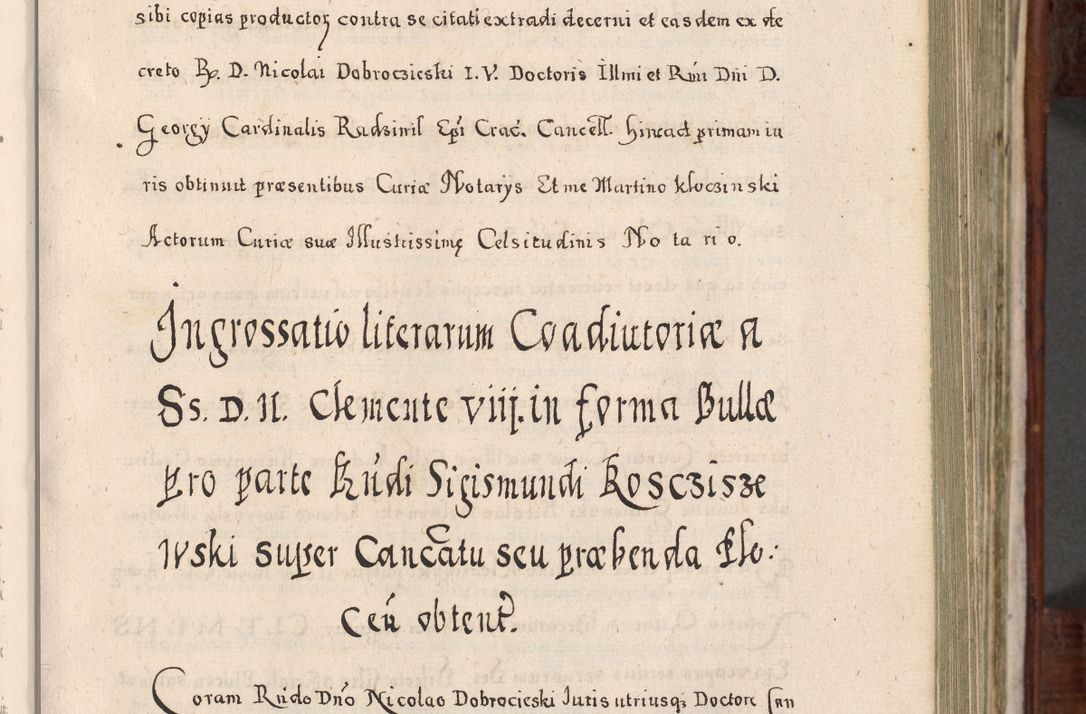 sibi copias productoꝝ contra se citati extradi decerni et easdem ex de
creto R. D. Nicolai Dobroczieski I. V. Doctoris Illmi et Rmi Dni D.
Georgÿ Cardinalis Radziwil Epi Crac. Cancell. hincad primam iu
ris obtinuit præsentibus Curiæ Notarÿs Et me Martino kłoczinski
Actorum Curiæ suæ Illustrissimę Celsitudinis No ta ri o.
Ingrossatio literarum Coadiutoriæ a
Ss. D. N. Clemente viij. in forma Bullæ
pro parte Rndi Sigismundi Rosczisze
wski super Cancatu seu præbenda Plo:
Cen obtent.
Coram Rndo Dno Nicolao Dobrocieski Juris utriusqʒ Doctore san